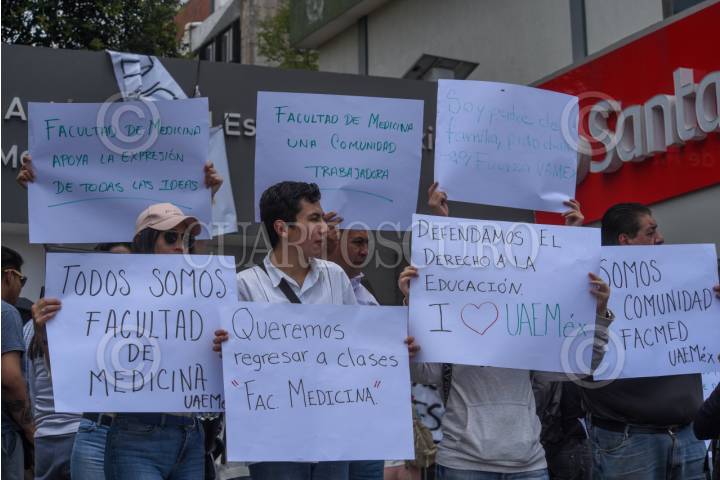 Santa
FACULTAD DE MEDICINA
APOYA LA EXPRESIÓN
DE TODAS LAS IDEAS
FACULTAD DE MEDICINA
UNA COMUNIDAD
TRABAJADORA
Soy padre de
familia, pido
Fuerza UAEM
TODOS SOMOS
FACULTAD
DE
MEDICINA
UAEM
Queremos
regresar a clases
"FAC. MEDICINA"
DEFENDAMOS EL
DERECHO A LA
EDUCACIÓN.
I ♡ UAEMéx
SOMOS
COMUNIDAD
FACMED
UAEMéx
CUARTOSCURO